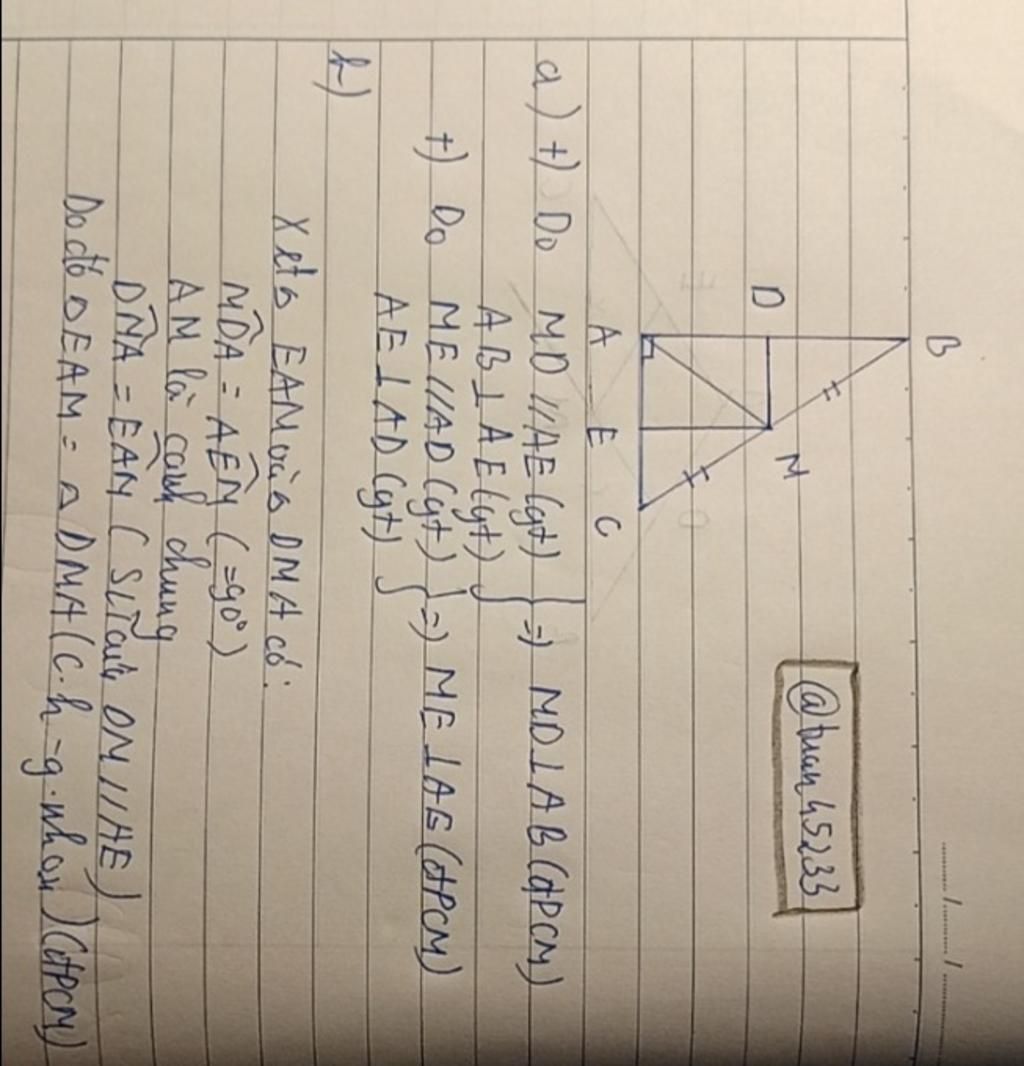 ......../......../........
B
@tuan45233
D
M
A
E
C
a) +) Do MD // AE (gt)
AB ⊥ AE (gt) } => MD ⊥ AB (đPCM)
+) Do ME // AD (gt)
AE ⊥ AD (gt) } => ME ⊥ AE (đPCM)
b)
Xét △ EAM và △ DMA có:
MD̂A = AÊM (=90°)
AM là cạnh chung
DM̂A = EÂM ( SLT của DM // AE)
Do đó △ EAM = △ DMA (c.h - g.nhọn) (đPCM)